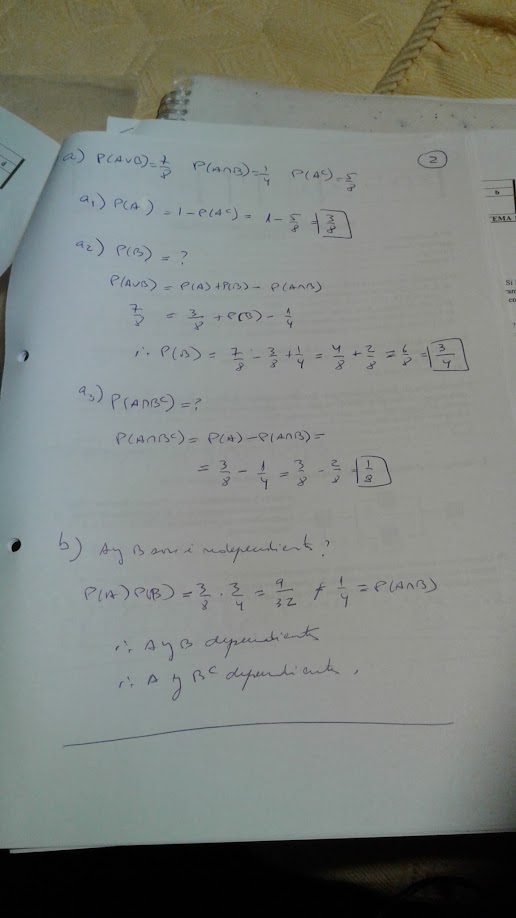 2
a) P(A∪B)=7/8 P(A∩B)=1/4 P(Aᶜ)=5/8
a1) P(A) = 1-P(Aᶜ) = 1-5/8 = 3/8
a2) P(B) = ?
P(A∪B) = P(A)+P(B)- P(A∩B)
7/8 = 3/8 + P(B) - 1/4
∴ P(B) = 7/8 - 3/8 + 1/4 = 4/8 + 2/8 = 6/8 = 3/4
a3) P(A∩Bᶜ) = ?
P(A∩Bᶜ) = P(A) - P(A∩B) =
= 3/8 - 1/4 = 3/8 - 2/8 = 1/8
b) A y B son independientes?
P(A)P(B) = 3/8 · 3/4 = 9/32 ≠ 1/4 = P(A∩B)
∴ A y B dependientes
∴ A y Bᶜ dependientes.
6
TEMA
Si